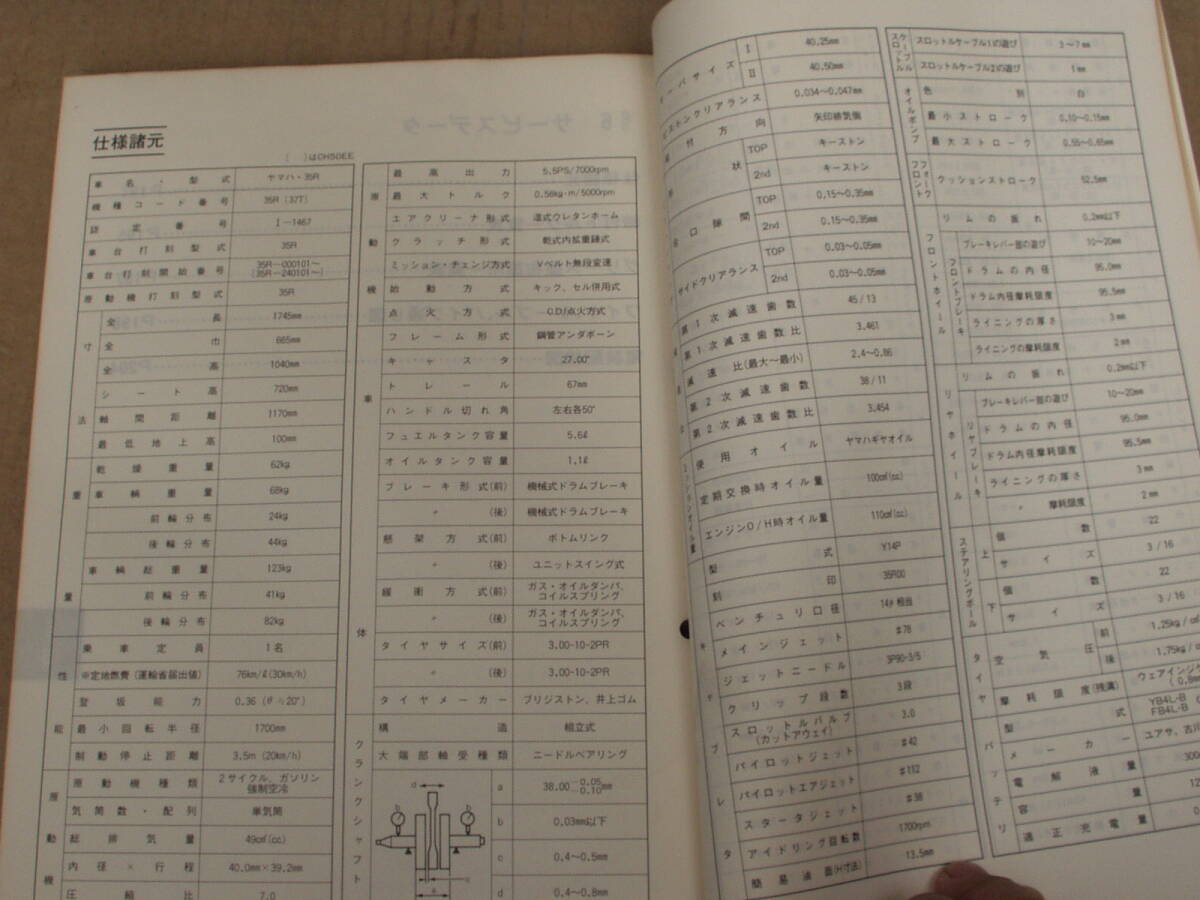 仕様諸元
( )はCH50EE
車名・型式 ヤマハ・35R
機種コード番号 35R (37T)
認定番号 I-1467
車台打刻型式 35R
車台打刻開始番号 35R-000101~
(35R-240101~)
原動機打刻型式 35R
寸法
全長 1745mm
全巾 665mm
全高 1040mm
シート高 720mm
軸間距離 1170mm
最低地上高 100mm
重量
乾燥重量 62kg
車輌重量 68kg
前輪分布 24kg
後輪分布 44kg
車輌総重量 123kg
前輪分布 41kg
後輪分布 82kg
性能
乗車定員 1名
※定地燃費(運輸省届出値) 76km/ℓ(30km/h)
登坂能力 0.36 (θ≒20°)
最小回転半径 1700mm
制動停止距離 3.5m (20km/h)
原動機
原動機種類 2サイクル、ガソリン
強制空冷
気筒数・配列 単気筒
総排気量 49cm³(cc)
内径×行程 40.0mm×39.2mm
圧縮比 7.0
原動機
最高出力 5.5PS/7000rpm
最大トルク 0.58kg-m/5000rpm
エアクリーナ形式 湿式ウレタンホーム
クラッチ形式 乾式内拡重錘式
ミッション・チェンジ方式 Vベルト無段変速
始動方式 キック、セル併用式
点火方式 C.D.I点火方式
車体
フレーム形式 鋼管アンダボーン
キャスタ 27.00°
トレール 67mm
ハンドル切れ角 左右各50°
フュエルタンク容量 5.6ℓ
オイルタンク容量 1.1ℓ
ブレーキ形式(前) 機械式ドラムブレーキ
〃 (後) 機械式ドラムブレーキ
懸架方式(前) ボトムリンク
〃 (後) ユニットスイング式
緩衝方式(前) ガス・オイルダンパ、
コイルスプリング
〃 (後) ガス・オイルダンパ、
コイルスプリング
タイヤサイズ(前) 3.00-10-2PR
〃 (後) 3.00-10-2PR
タイヤメーカー ブリジストン、井上ゴム
クランクシャフト
構造 組立式
大端部軸受種類 ニードルベアリング
a 38.00 -0.05 -0.10 mm
b 0.03mm以下
c 0.4~0.5mm
d 0.4~0.8mm
ーバサイズ I 40.25mm
II 40.50mm
ピストンクリアランス 0.034~0.047mm
付方向 矢印排気側
状 TOP キーストン
2nd キーストン
合口隙間 TOP 0.15~0.35mm
2nd 0.15~0.35mm
サイドクリアランス TOP 0.03~0.05mm
2nd 0.03~0.05mm
第1次減速歯数 45/13
第1次減速歯数比 3.461
減速比(最大~最小) 2.4~0.86
第2次減速歯数 38/11
第2次減速歯数比 3.454
ミッションオイル量
使用オイル ヤマハギヤオイル
定期交換時オイル量 100cm³(cc)
エンジンO/H時オイル量 110cm³(cc)
キャブレタ
型式 Y14P
刻印 35R00
ベンチュリ口径 14φ相当
メインジェット #78
ジェットニードル 3P90-3/5
クリップ段数 3段
スロットルバルブ
(カットアウェイ) 3.0
パイロットジェット #42
パイロットエアジェット #112
スタータジェット #38
アイドリング回転数 1700rpm
簡易油面(H寸法) 13.5mm
スロットルケーブル
スロットルケーブル1の遊び 3~7mm
スロットルケーブル2の遊び 1mm
オイルポンプ
色別 白
最小ストローク 0.10~0.15mm
最大ストローク 0.55~0.65mm
フロントフォーク
クッションストローク 52.5mm
フロントホイール
リムの振れ 0.2mm以下
フロントブレーキ
ブレーキレバー部の遊び 10~20mm
ドラムの内径 95.0mm
ドラム内径摩耗限度 95.5mm
ライニングの厚さ 3mm
ライニングの摩耗限度 2mm
リヤホイール
リムの振れ 0.2mm以下
リヤブレーキ
ブレーキレバー部の遊び 10~20mm
ドラムの内径 95.0mm
ドラム内径摩耗限度 95.5mm
ライニングの厚さ 3mm
〃 摩耗限度 2mm
ステアリングボール
上 個数 22
サイズ 3/16
下 個数 22
サイズ 3/16
タイヤ
空気圧 前 1.25kg/
後 1.75kg/
摩耗限度(残溝) ウェアインジ
(0.8mm
バッテリ
型式 YB4L-B
FB4L-B
メーカー ユアサ、古
電解液量 300
容量 12
適正充電量 0.